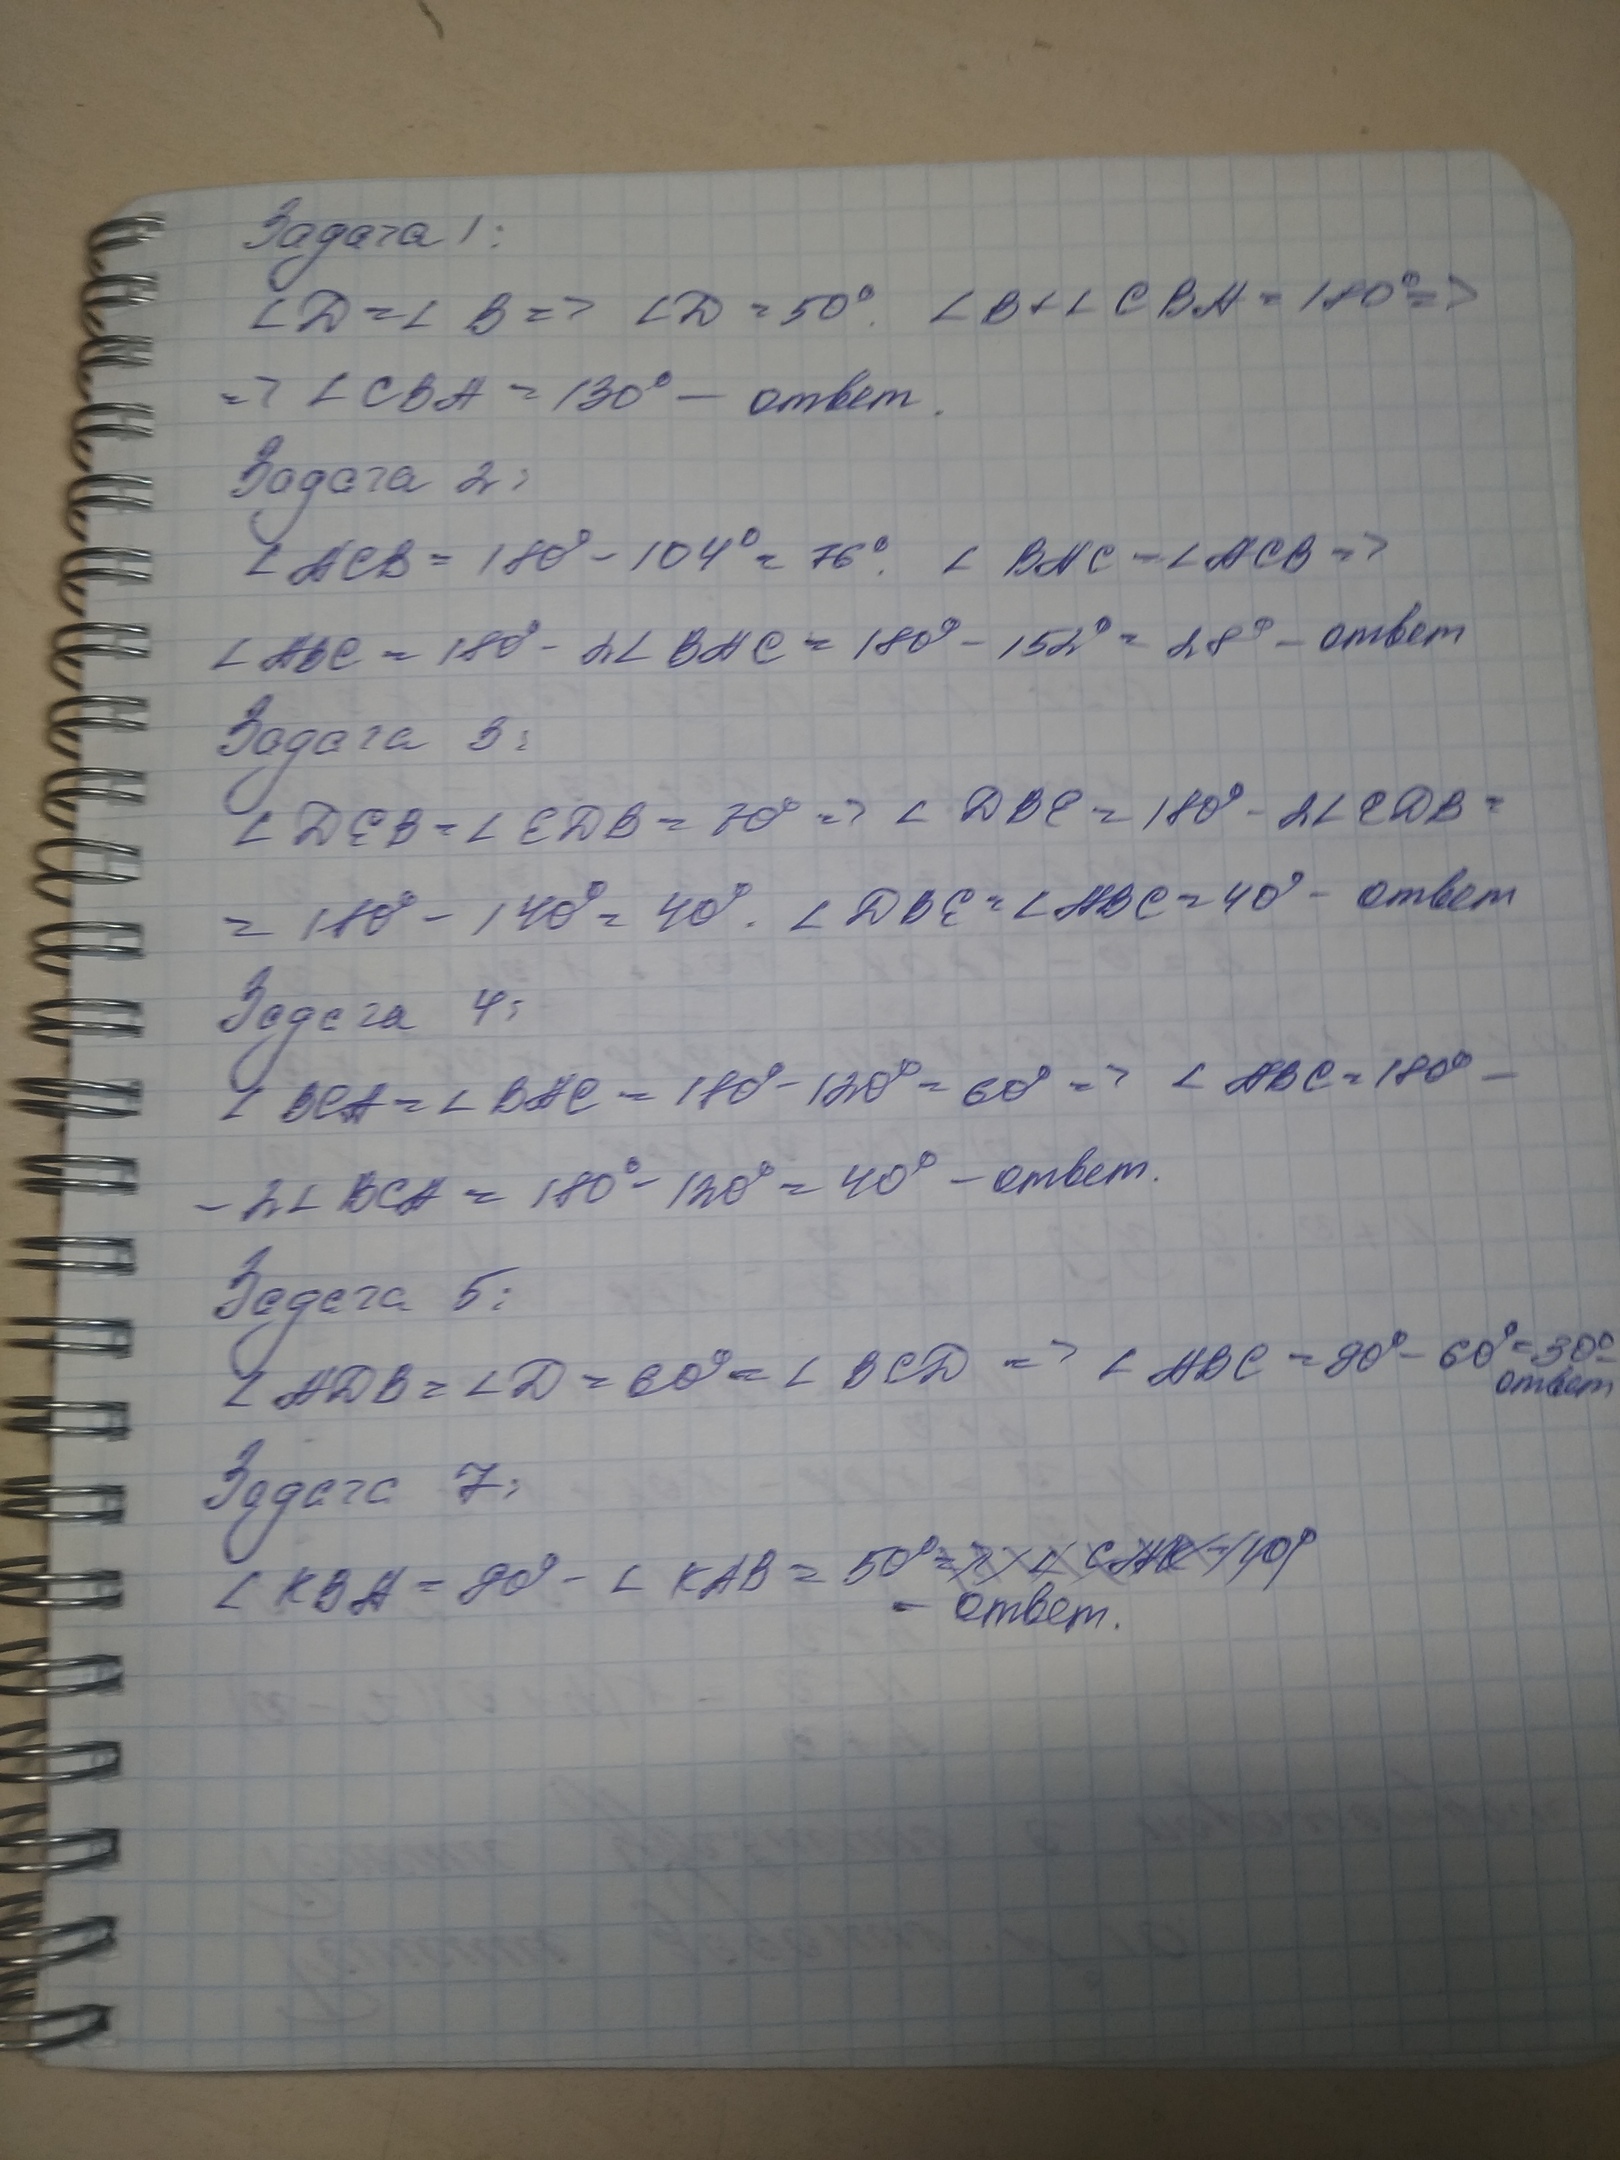 Задача 1:
∠D = ∠B => ∠D = 50°. ∠B + ∠CBA = 180° =>
=> ∠CBA = 130° – ответ.
Задача 2:
∠ACB = 180° - 104° = 76°. ∠BAC = ∠ACB =>
∠ABC = 180° - 2∠BAC = 180° - 152° = 28° – ответ
Задача 3:
∠DEB = ∠EDB = 70° => ∠DBE = 180° - 2∠EDB =
= 180° - 140° = 40°. ∠DBE = ∠ABC = 40° – ответ
Задача 4:
∠BCA = ∠BAC = 180° - 120° = 60° => ∠ABC = 180° -
- 2∠BCA = 180° - 120° = 40° – ответ.
Задача 5:
∠ADB = ∠D = 60° = ∠BCD => ∠ABC = 90° - 60° = 30° –
ответ
Задача 7:
∠KBA = 90° - ∠KAB = 50°
– ответ.